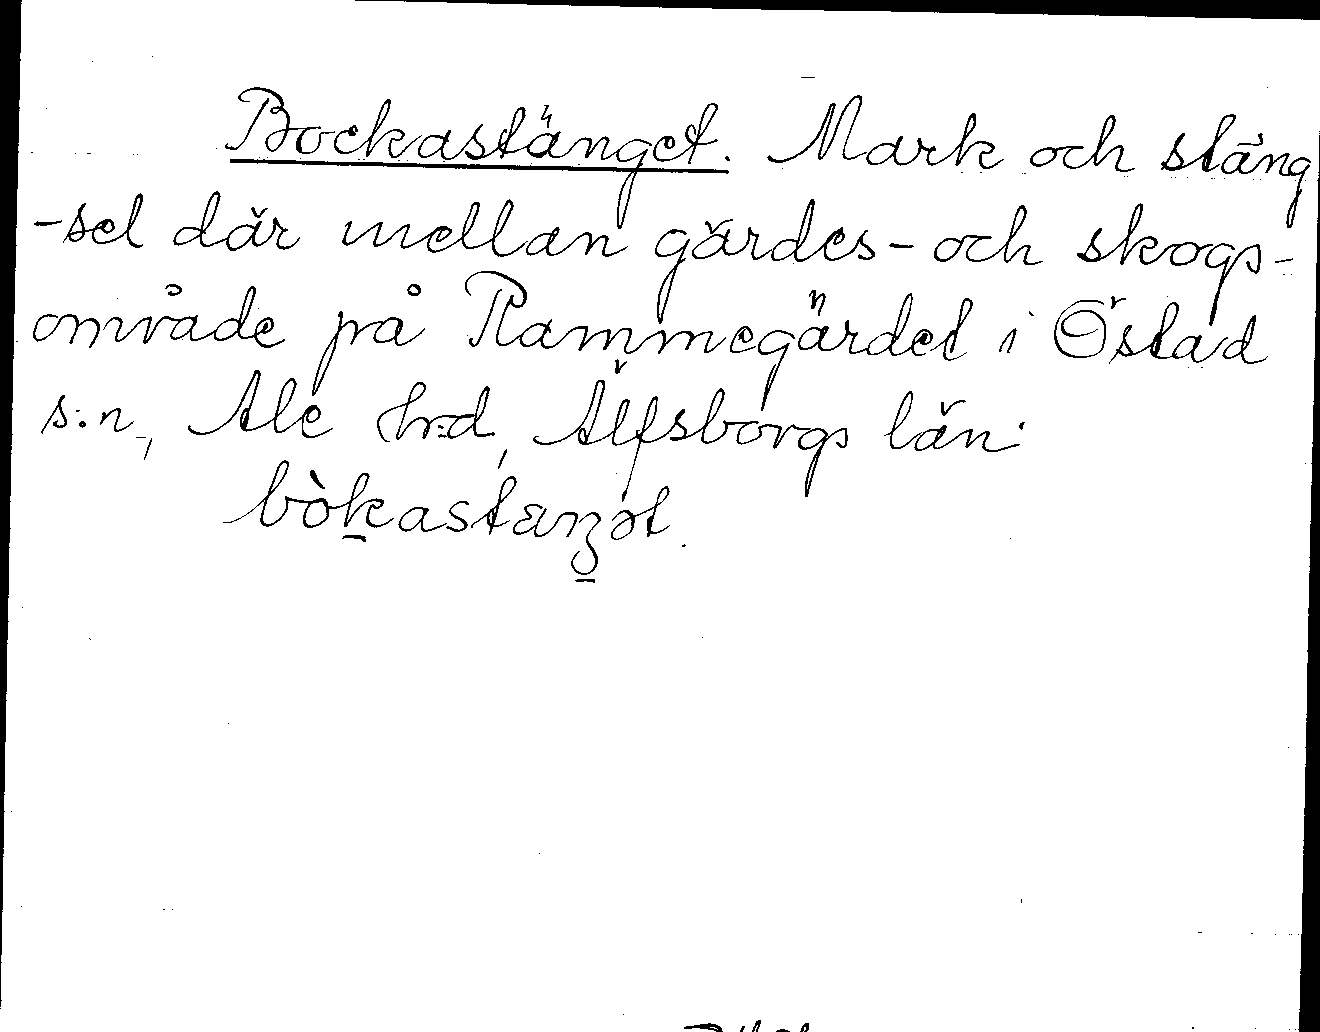 Bockastänget. Mark och stäng
-sel där mellan gärdes- och skogs-
område på Rammegärdet i Östad
s:n, Ale hrd, Älfsborgs län.
bòkastæŋət.